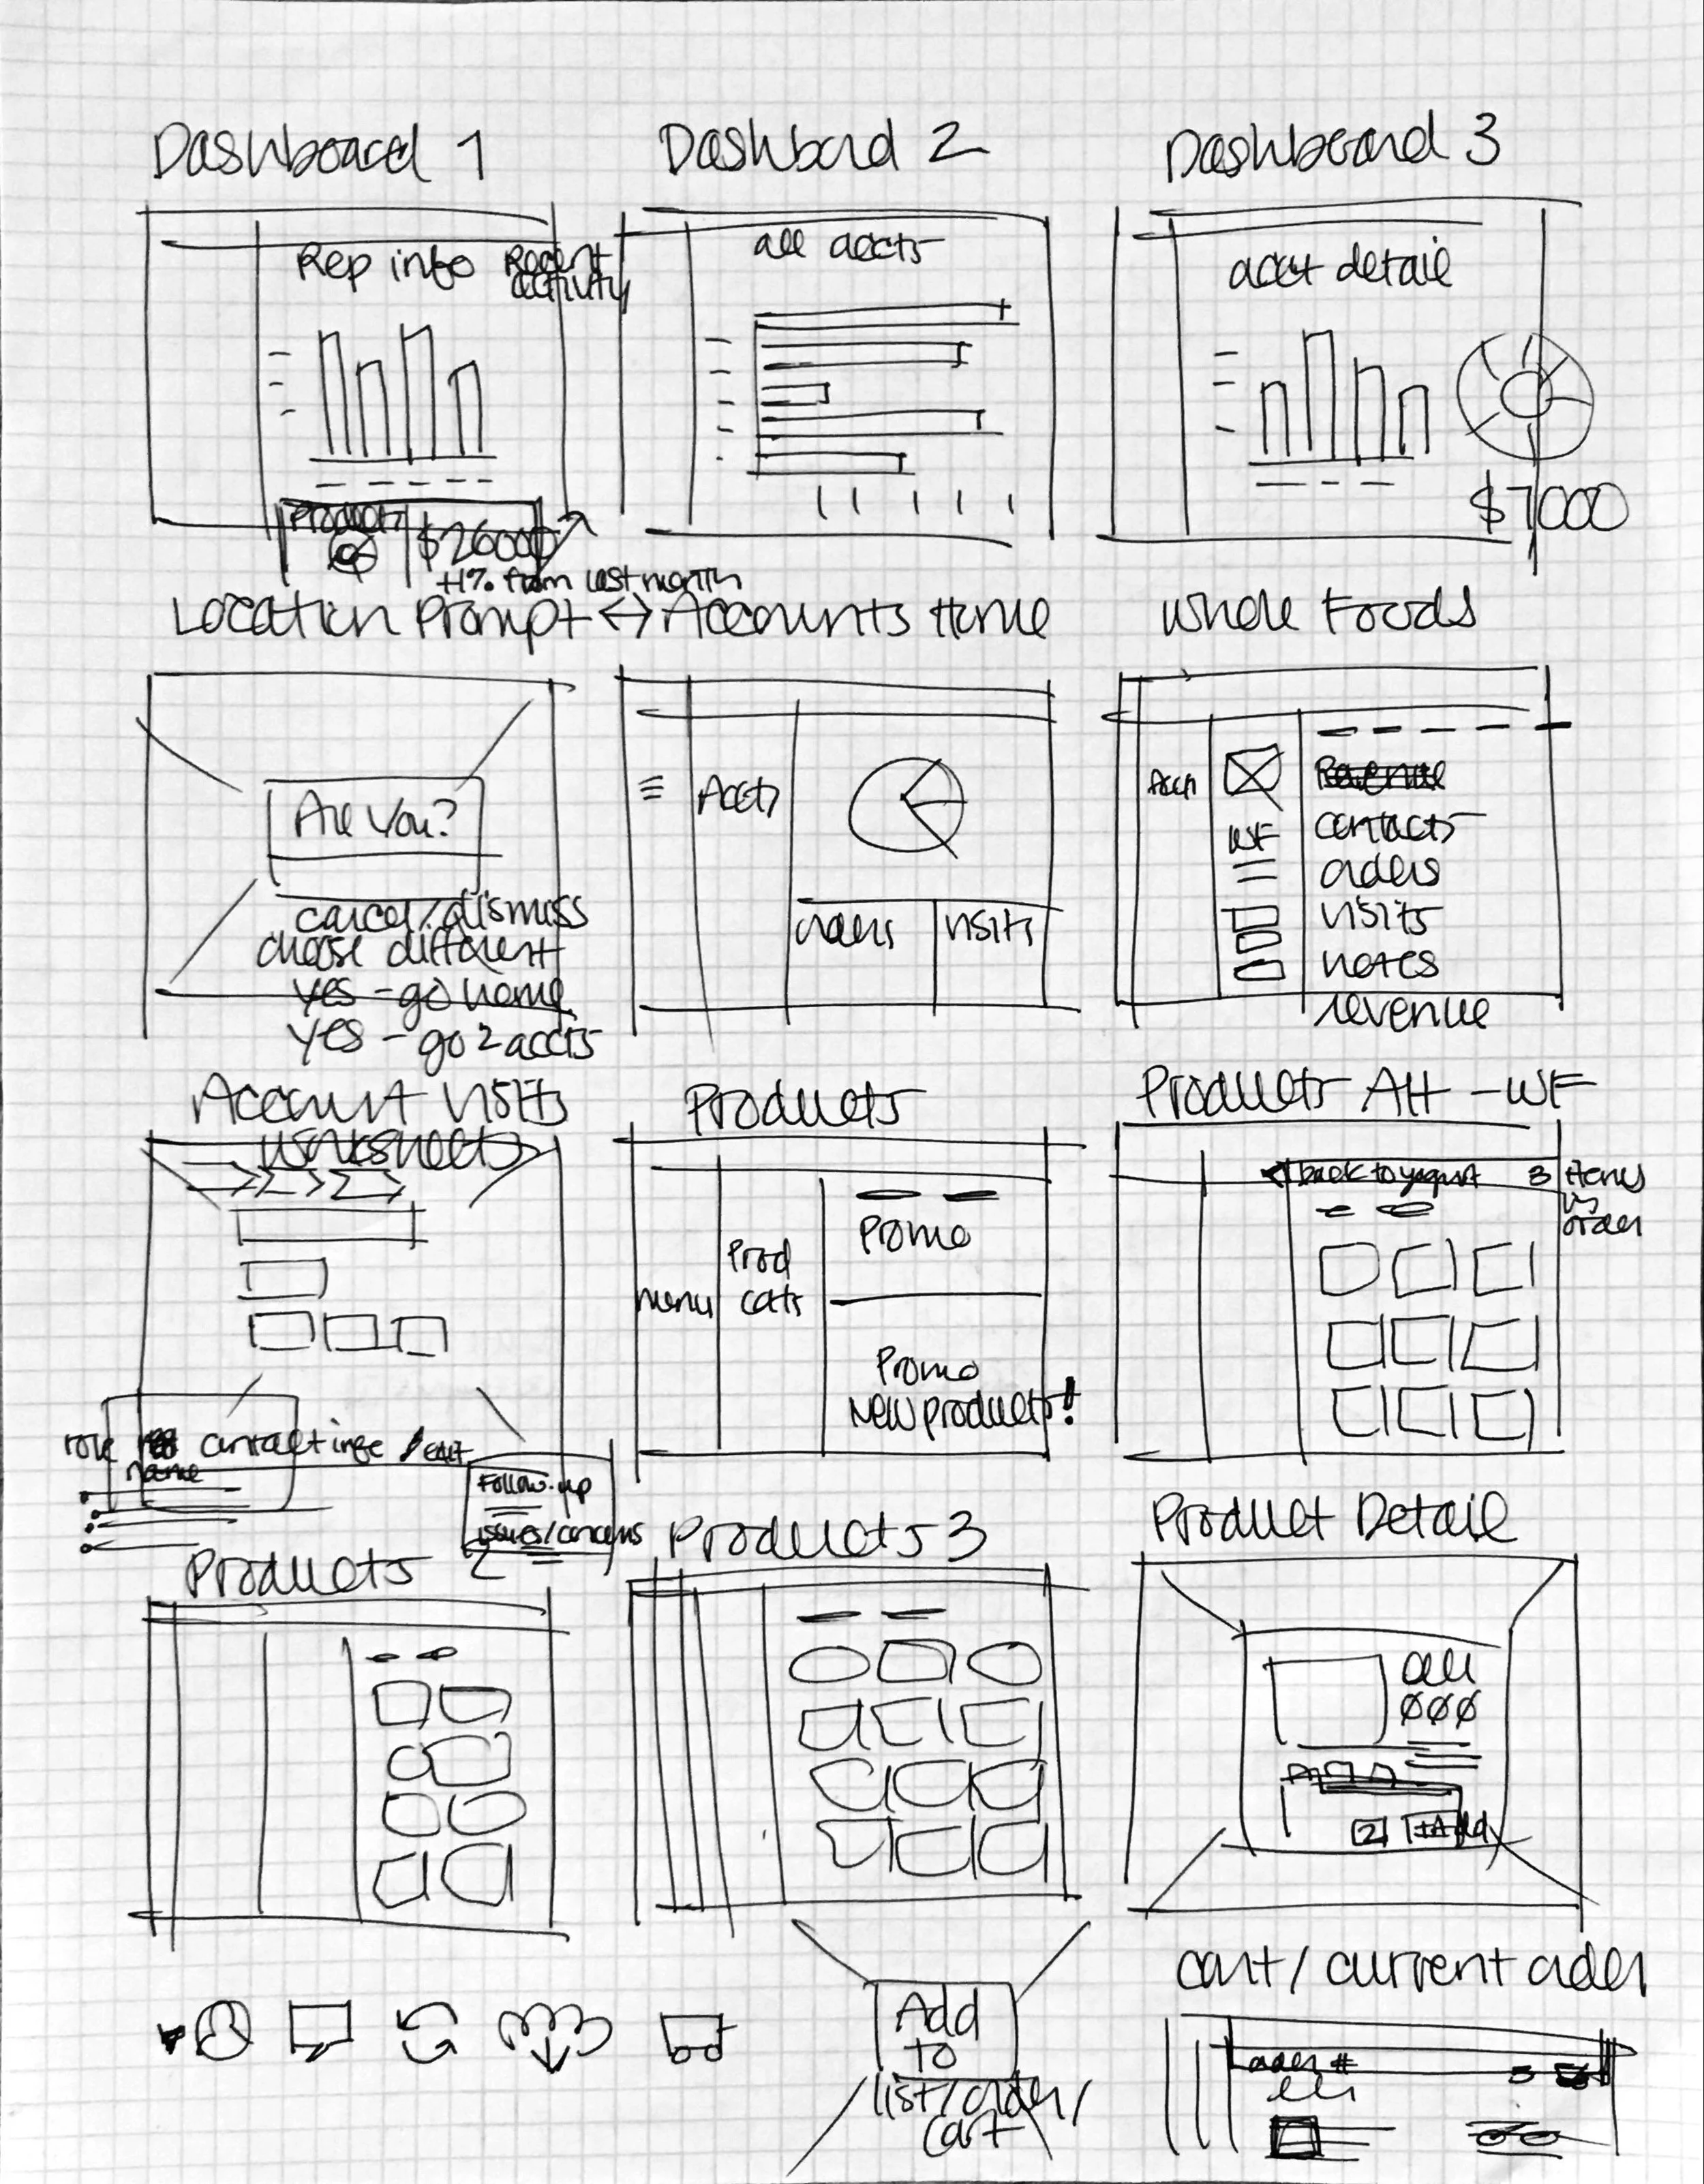 Dashboard 1
Dashbord 2
Dashboard 3
Rep info
Recent
activity
all accts
acct detail
Products
$26000
+1% from last month
$7000
Location Prompt <-> Accounts Home
Whole Foods
Are You?
cancel/dismiss
choose different
yes - go home
yes - go 2 accts
Accts
orders
visits
Accts
WF
Revenue
contacts
orders
visits
notes
revenue
Account Visits
Worksheets
role
name
contact info / edit
Follow-up
issues/concerns
Products
menu
Prod
cats
Promo
Promo
New products!
Products Alt - WF
back to yogurt
3 items
in
order
Products 2
Products 3
Product Detail
2
+Add
Add
to
list/order/
cart
cart/current order
order #